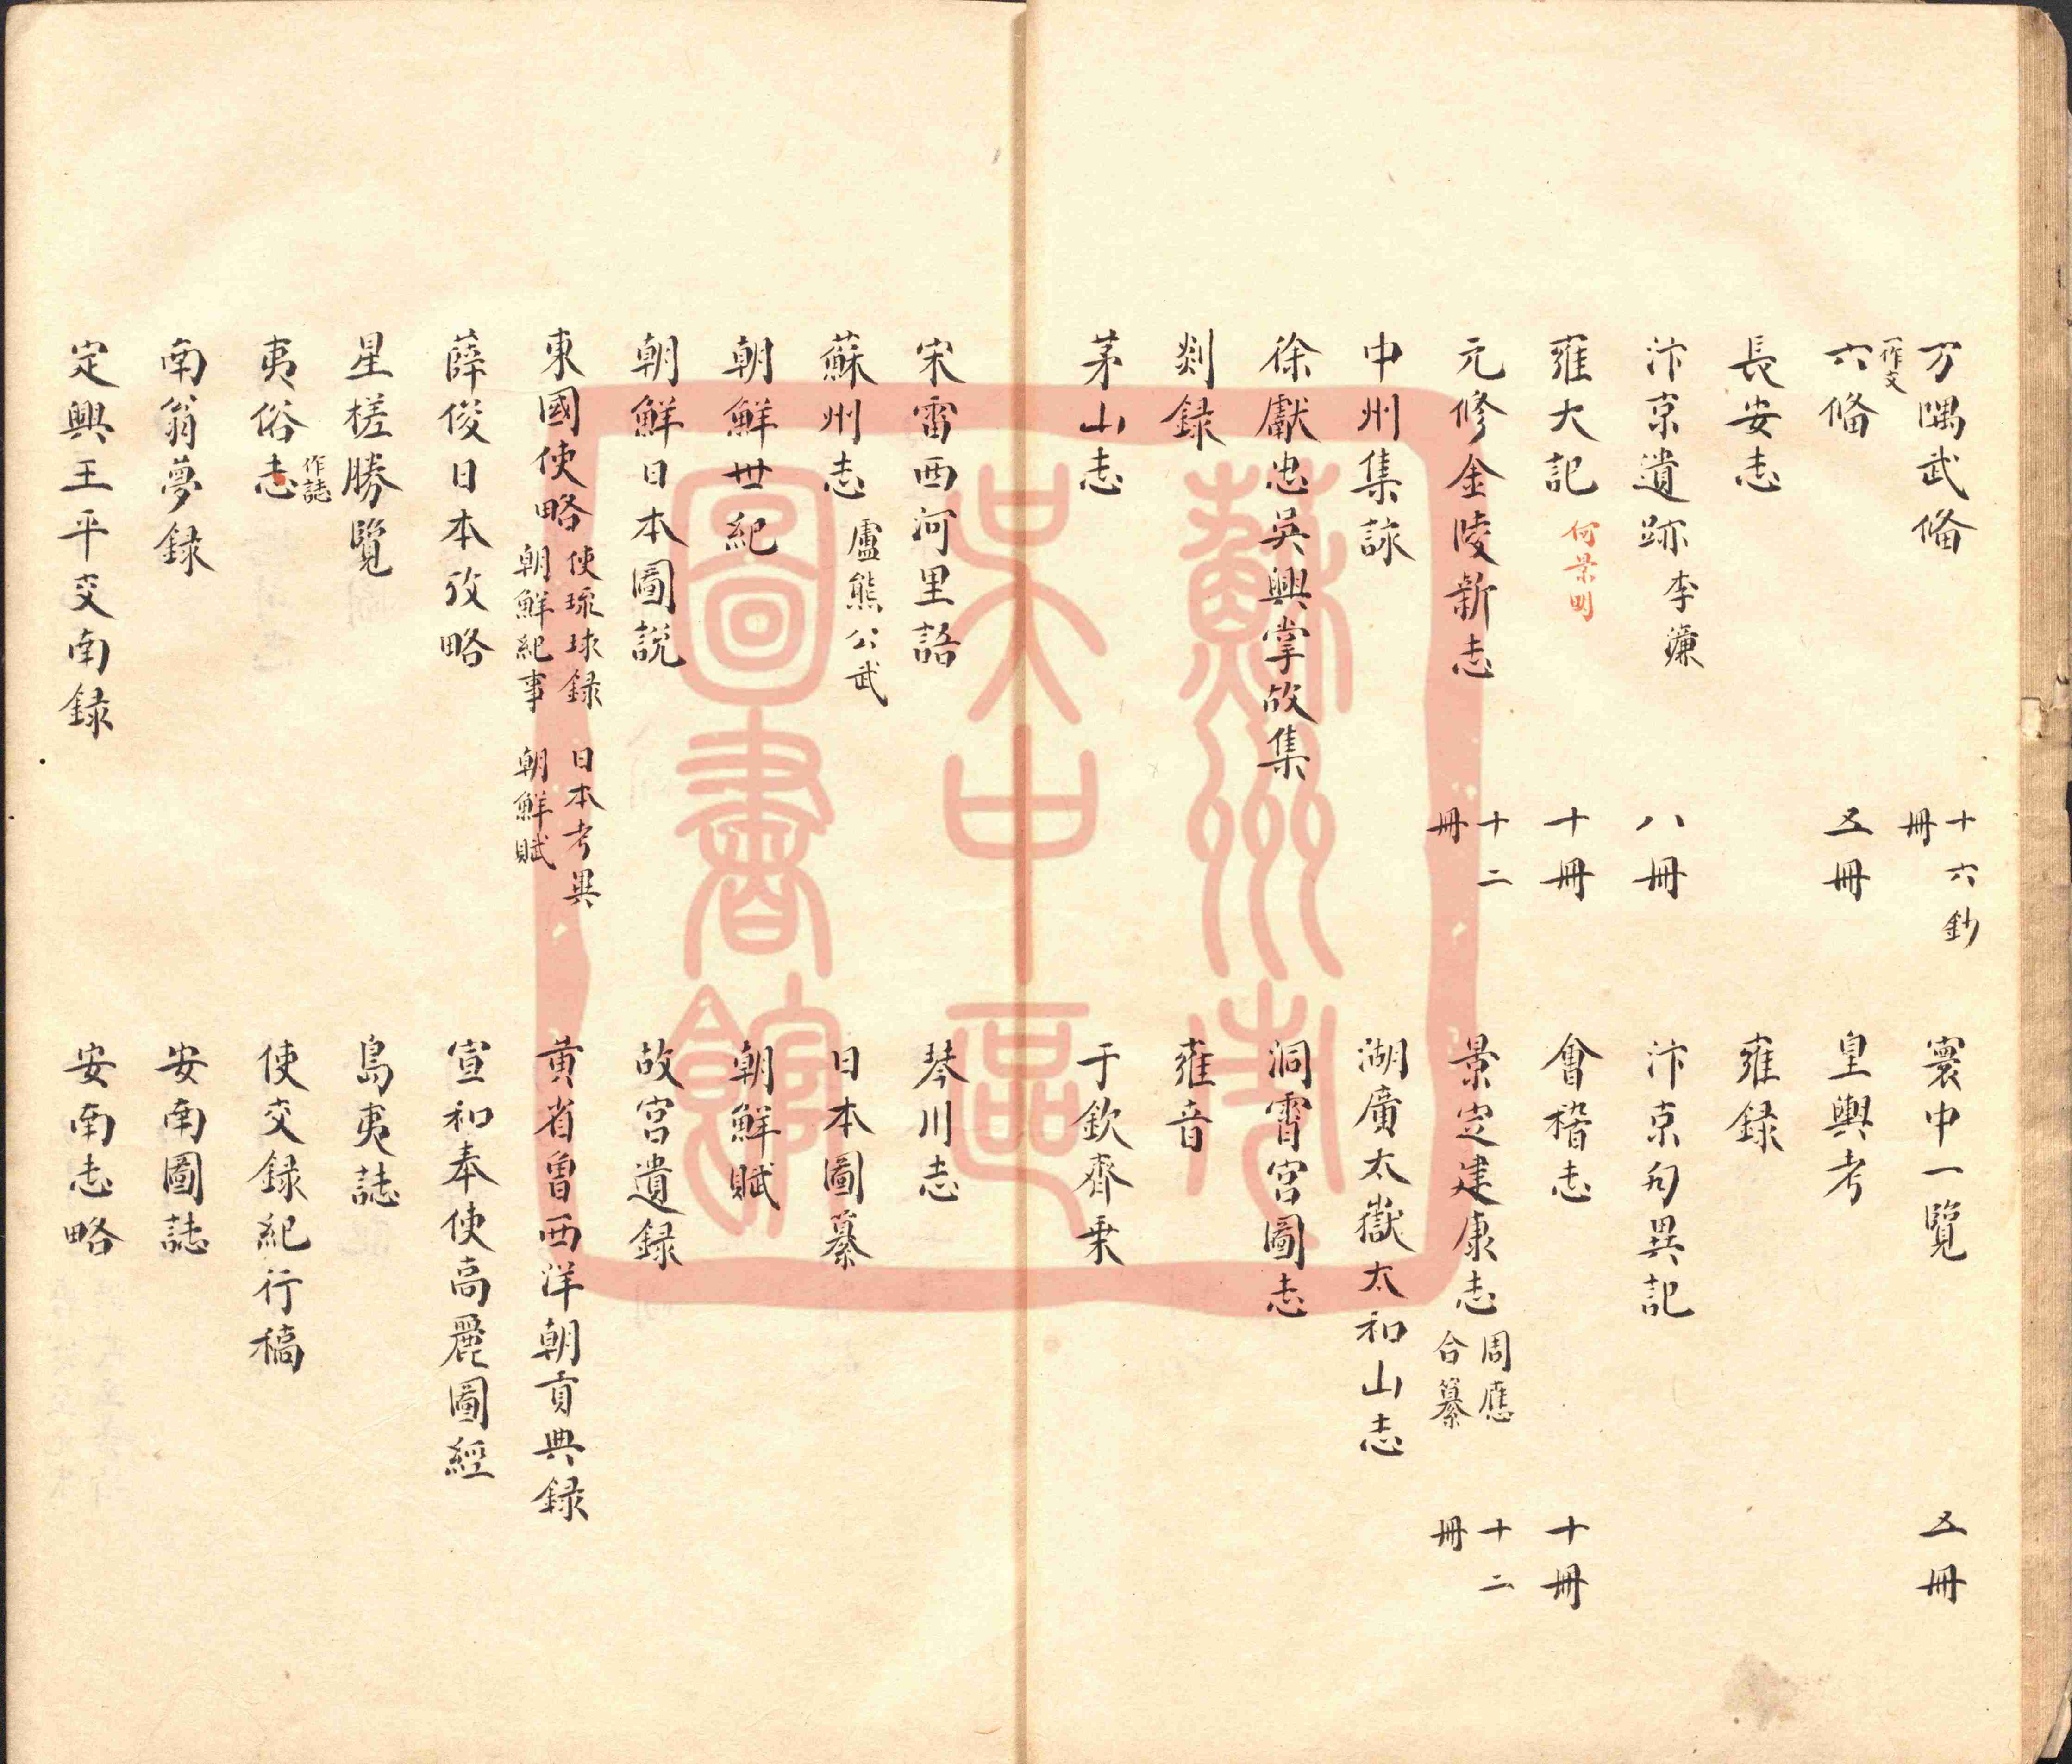 方隅武備 十六冊 鈔 寰中一覽 五冊
六備 一作文 五冊 皇輿考
長安志 雍録
汴京遺跡 李濂 八冊 汴京勾異記
雍大記 何景明 十冊 會稽志 十冊
元修金陵新志 十二冊 景定建康志 周應合纂 十二冊
中州集詠 湖廣太嶽太和山志
徐獻忠吳興掌故集 洞霄宮圖志
剡録 雍音
茅山志 于欽齊乗
宋雷西河里語 琴川志
蘇州志 盧熊公武 日本圖纂
朝鮮世紀 朝鮮賦
朝鮮日本圖説 故宮遺録
東國使略 使琉球録 朝鮮紀事 日本考異 朝鮮賦 黄省曾西洋朝貢典録
薛俊日本攷略 宣和奉使高麗圖經
星槎勝覽 島夷誌
夷俗志 作誌 使交録紀行稿
南翁夢録 安南圖誌
定興王平交南録 安南志略
蘇州市
吴中區
圖書館